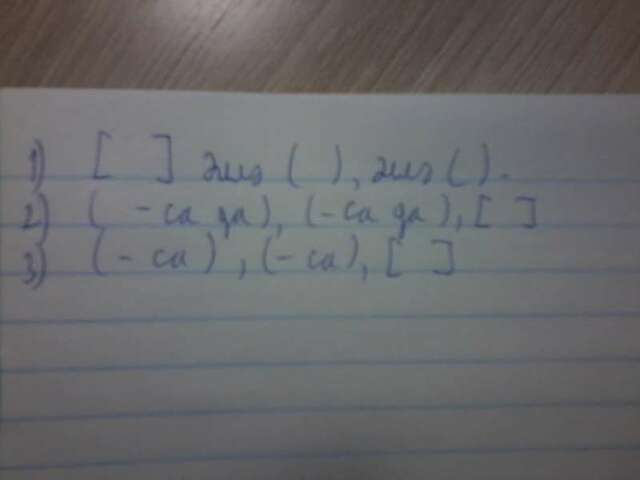 1) [ ] ( ), ( ).
2) ( -са да), (-са да), [ ]
3) (-са), (-са), [ ]